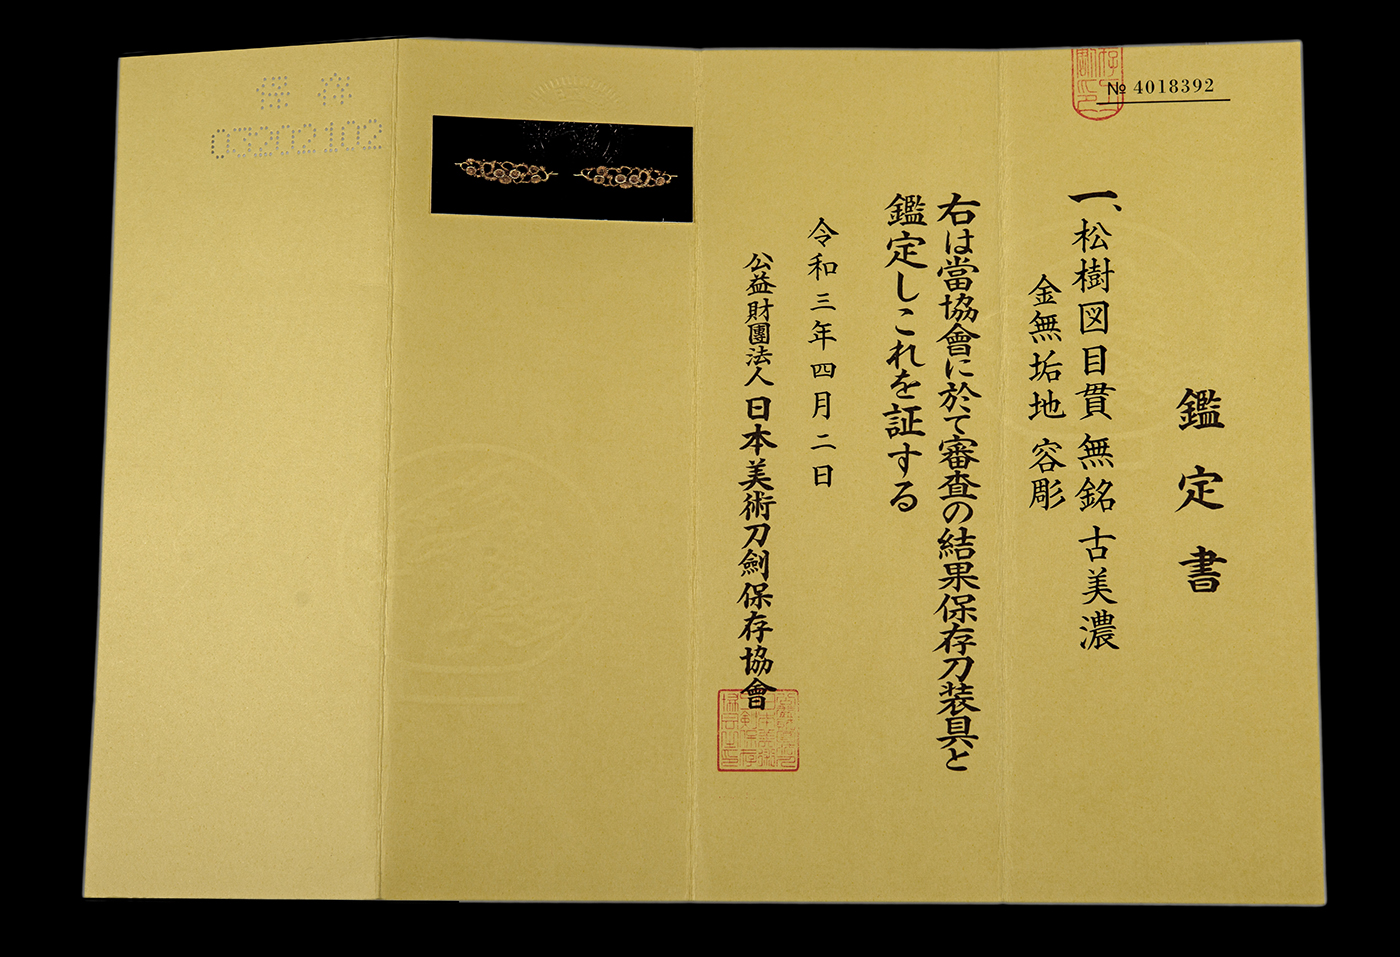 № 4018392
鑑定書
一、松樹図目貫 無銘 古美濃
金無垢地 容彫
右は當協會に於て審査の結果保存刀装具と
鑑定しこれを証する
令和三年四月二日
公益財團法人 日本美術刀劍保存協會
保存
03202102